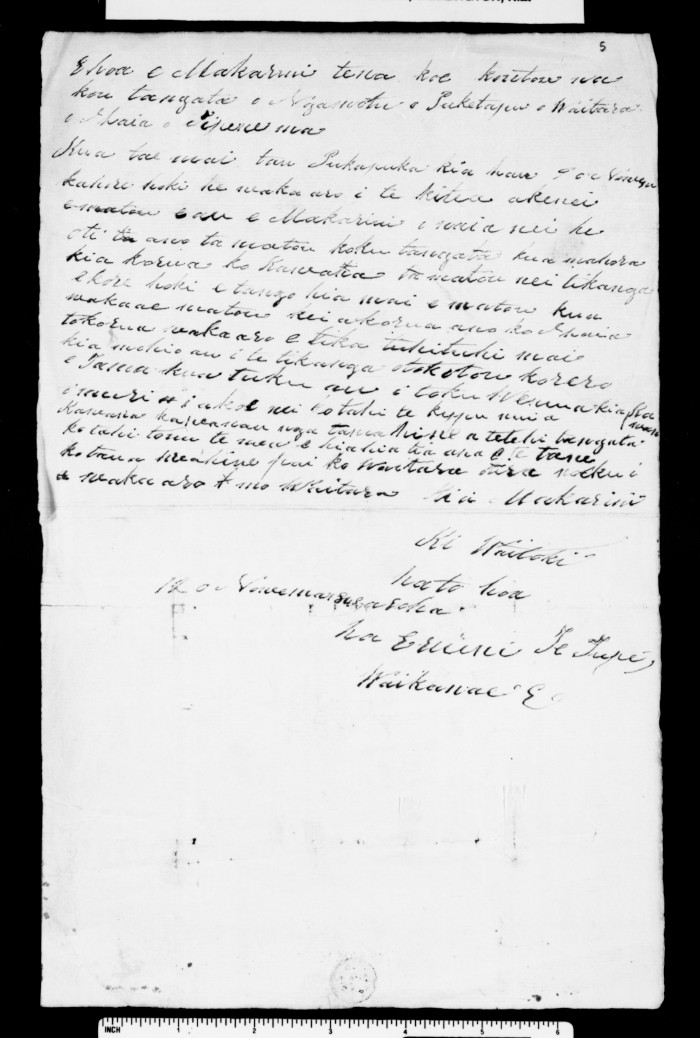 5
E hoa e Makarini tena koe koutou na
kou tangata o Ngamotu o Puketapu o Waitara
o Ihaia o Tipene ma
Kua tae mai tau Pukapuka kia hau 9 o Nowem
kahore hoki he waka aro i te kitea akenei
e matou e au e Makarini i naia nei he
oti ta ano ta matou koku tangata kua mahora
kia korua ko Kawana ta matou nei tikanga
e kore hoki e tango hia mai e matou kua
wakaae matou kei a korua ano ko Ihaia
tokorua waka aro e tika tuhituhi mai
kia mohio au i te tikanga otokotou korero
e Tama kua tuku au i toku Wenua kia
i muri i akoe nei kotahi te
Kawana nga tama hine a tetehi tangata
kotahi tonu te mea e hiahia tia ana e te tane
ko tana wahine pai ko Waitara
waka aro mo Waitara Kia Makarini
Ki Waitoki
na to hoa
12 o Nowema
na Eruini Te Tupe
Waikanae
INCH 1 2 3 4 5 6